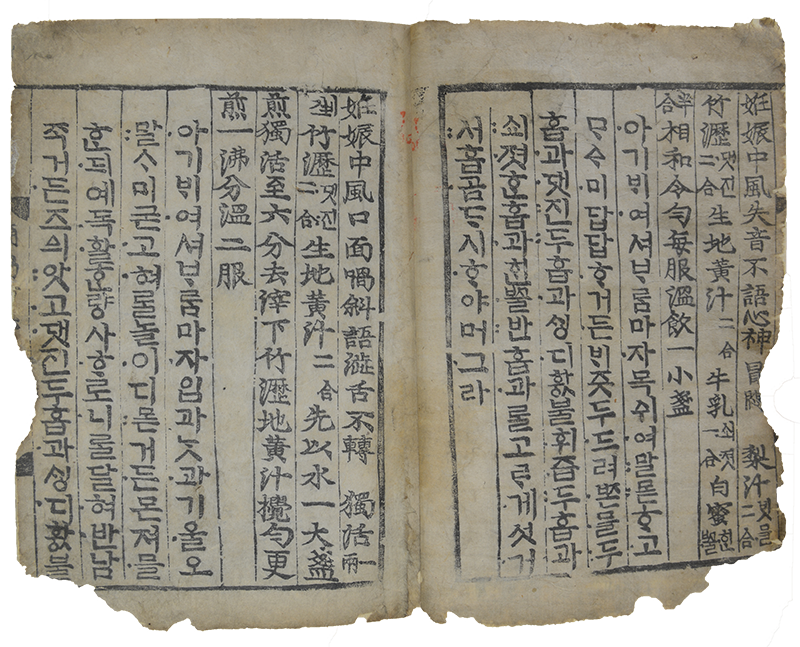 姙娠中風失音不語心神冒悶 梨汁ᄇᆡᆺ믈二合
竹瀝댓진二合 生地黃汁二合 牛乳쇠졋一合 白蜜ᄒᆡᆫᄢᅮᆯ
半合 相和令勻每服溫飲一小盞
아기ᄇᆡ여셔ᄇᆞᄅᆞᆷ마자목쉬여말몯ᄒᆞ고
ᄆᆞᅀᆞ미답답ᄒᆞ거든ᄇᆡ즛두드려ᄧᆞᆫ믈두
홉과댓진두홉과ᄉᆡᆼ디황불휘즙두홉과
쇠졋ᄒᆞᆫ홉과ᄒᆡᆫᄢᅮᆯ반홉과ᄅᆞᆯ고ᄅᆞ게섯거
서홉곰ᄃᆞ시ᄒᆞ야머그라
姙娠中風口面喎斜語澁舌不轉 獨活一兩
剉 竹瀝댓진二合 生地黃汁二合 先以水一大盞
煎獨活至六分去滓下竹瀝地黃汁攪勻更
煎一沸分溫二服
아기ᄇᆡ여셔ᄇᆞᄅᆞᆷ마자입과ᄂᆞᆺ과기울오
말ᄉᆞ미굳고혀를놀이디몯거든몬져믈
ᄒᆞᆫ듸예독활ᄒᆞᆫ량사ᄒᆞ로니ᄅᆞᆯ달혀반남
죽거든즈ᅀᅴ앗고댓진두홉과ᄉᆡᆼ디황불